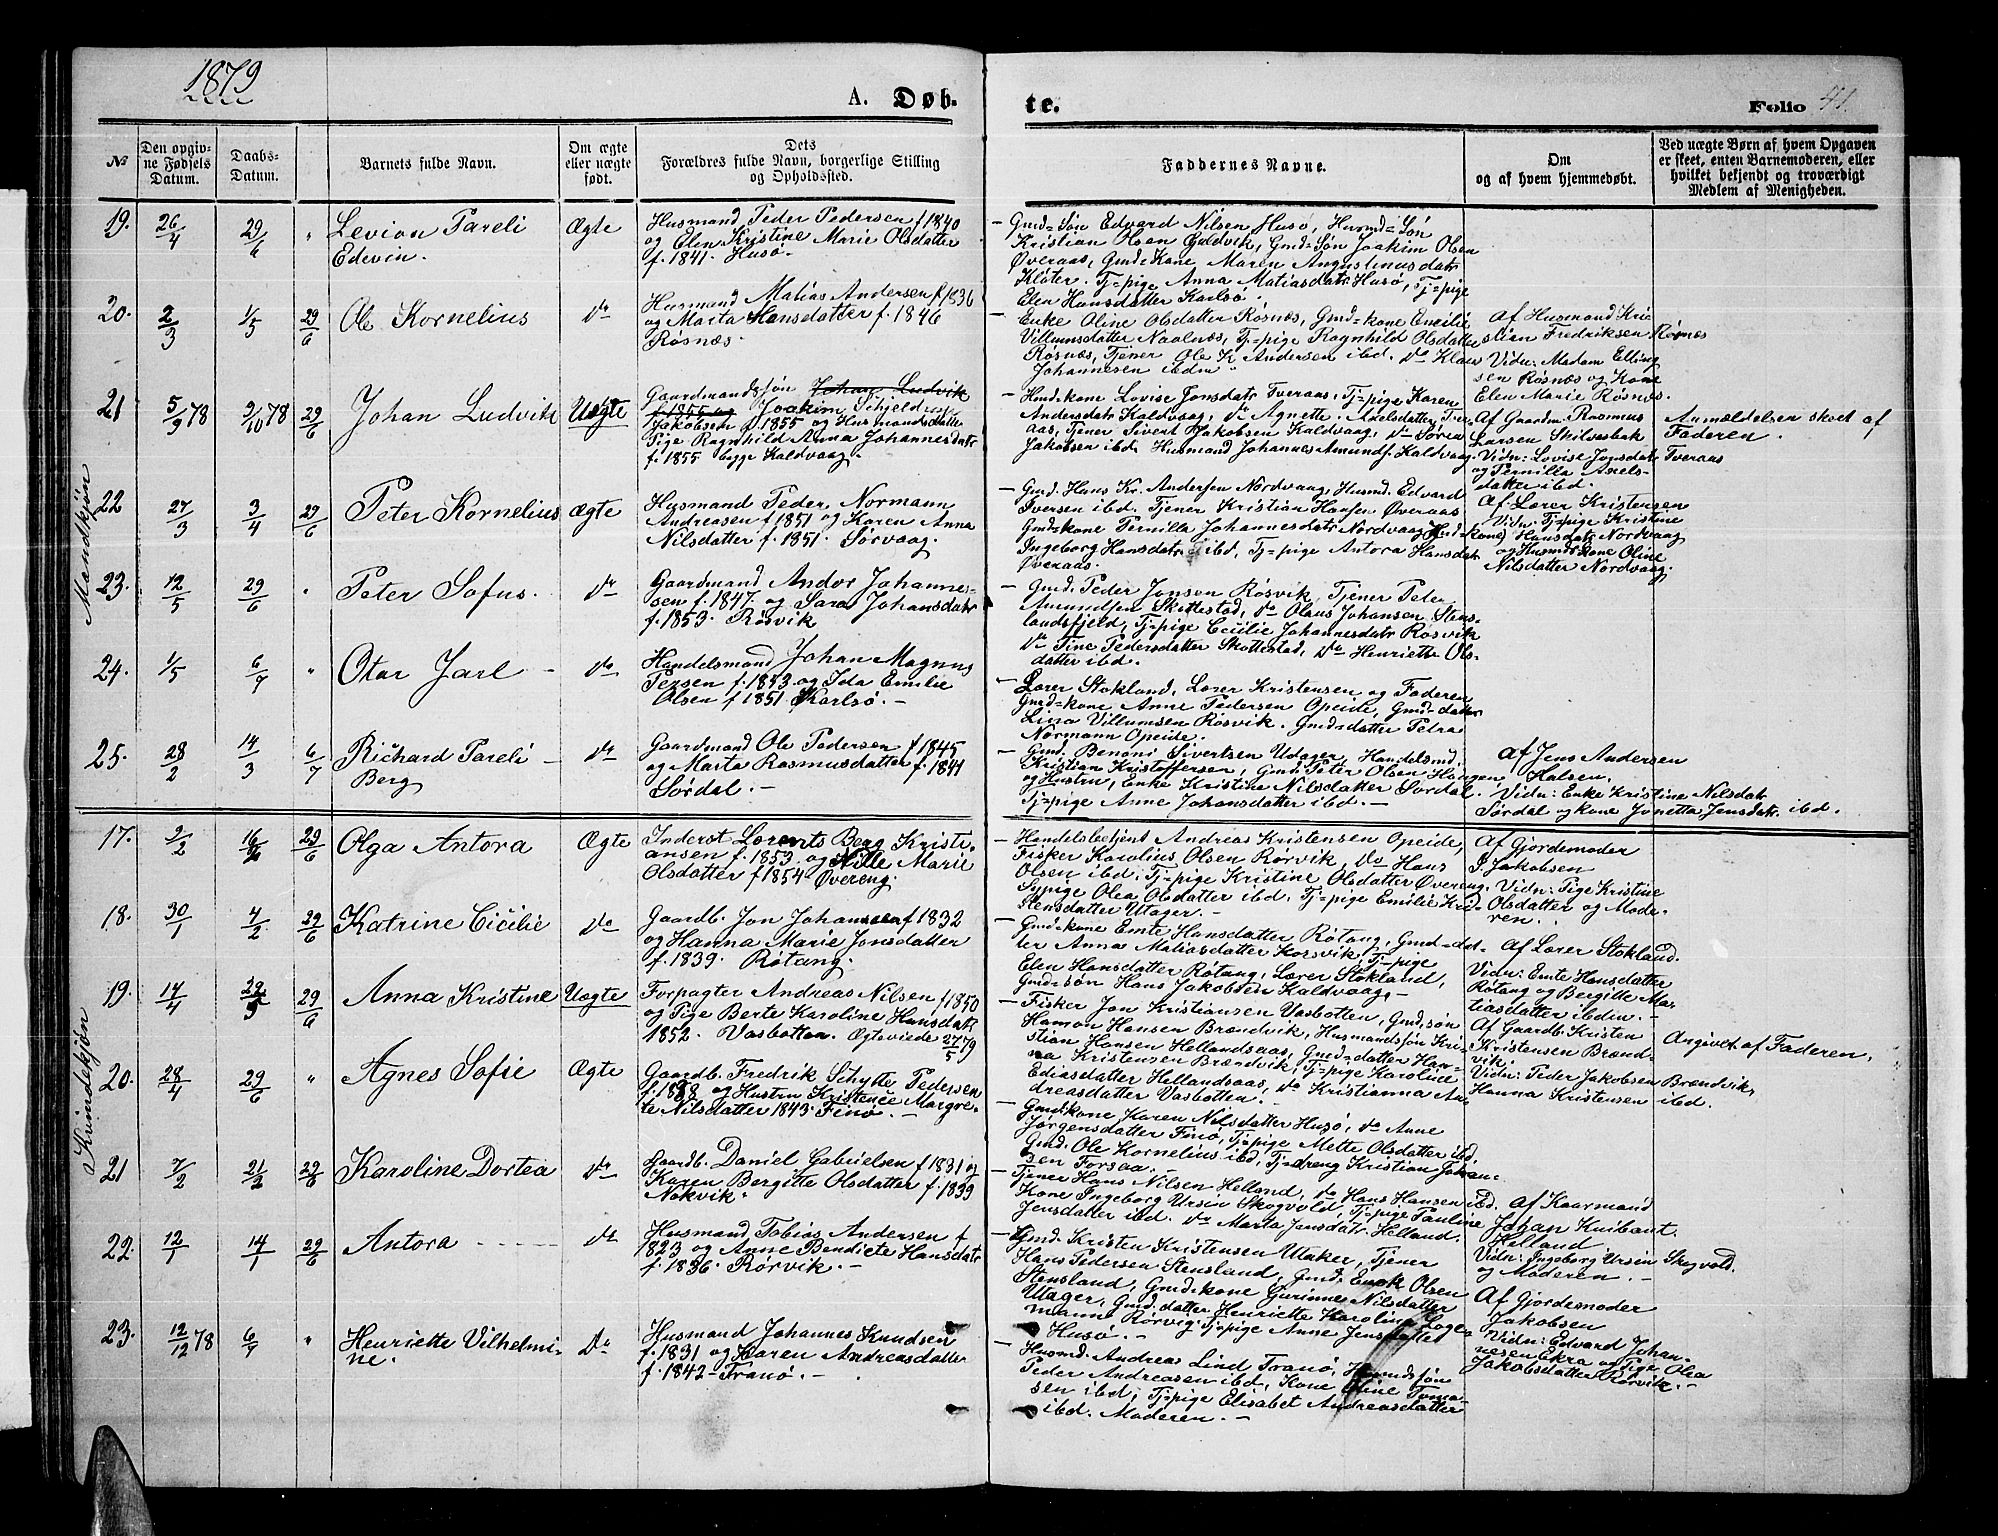 1879
A. Døb-
te.
Folio 41.
№
Den opgivne Fødsels Datum.
Daabs-Datum.
Barnets fulde Navn.
Om ægte eller uægte født.
Dets Forældres fulde Navn, borgerlige Stilling og Opholdssted.
Faddernes Navne.
Om og af hvem hjemmedøbt.
Ved uægte Børn af hvem Opgaven er skeet, enten Barnemoderen, eller hvilket bekjendt og troværdigt Medlem af Menigheden.
Mandkjøn
19. 26/4 29/6 " Levion Pareli Edevin. Ægte
Husmand Peder Pedersen f 1840
og Elen Kristine Marie Olsdatter
f. 1841. Husø.
— Gmd=Søn Edvard Nilsen Husø, Husmd=Søn
Kristian Olsen Guldvik, Gmd=Søn Joakim Olsen
Øveraas, Gmd=Kone Maren Augustinusdatr
Kløter. Tj=pige Anna Matiasdatr Husø, Tj=pige
Elen Hansdatter Karlsø.
20. 2/3 1/5 29/6 Ole Kornelius do
Husmand Matias Andersen f 1836
og Marta Hansdatter f. 1846
Røsnæs.
— Enke Oline Olsdatter Røsnæs, Gmd=kone Encilie
Villumsdatter Naalnæs, Tj=pige Ragnhild Olsdatter
Røsnæs, Tjener Ole K. Andersen ibd. do Klaus
Johannesen ibdn
Af Husmand Kri-
stian Fredriksen Røsnæs
Vidn: Madam Elling-
sen Røsnæs og Kone
Elen Marie Røsnæs.
21 5/9 78 9/10 78 29/6 Johan Ludvik Uægte
Gaardmandssøn Johan Ludvik
f. 1855 og Joakim Schjeldrup
Jakobsen f 1855 og Husmandsdatter
Pige Ragnhild Anna Johannesdatr
f. 1855 begge Kaldvaag.
— Hmd=kone Lovise Jonsdatr Tveraas, Tj=pige Karen
Andersdatr Kaldvaag, do Agnette Axelsdatter Tver-
aas, Tjener Sivert Jakobsen Kaldvaag, do Søren
Jakobsen ibd. Husmand Johannes Amundsn Kaldvaag.
Af Gaardm. Rasmus
Larsen Skilvasbak
Vidn: Lovise Jonsdatr Tveraas
og Pernilla Axels-
datter ibd.
Anmeldelsen skeet af
Faderen.
22 27/3 3/4 29/6 Peter Kornelius Ægte
Husmand Peder Normann
Andreasen f 1851 og Karen Anna
Nilsdatter f. 1851. Sørvaag.
— Gmd. Hans Kr. Andersen Nordvaag, Husmd. Edvard
Iversen ibd. Tjener Kristian Hansen Øveraas
Gmd=kone Pernilla Johannesdatr Nordvaag, Hmd=kone
Ingeborg Hansdatr ibd, Tj=pige Antora Hansdatr
Øveraas.
Af Lærer Kristensen
Vidn: Tj=pige Kristine
Hansdatr Nordvaag
og Husmds Kone Oline
Nilsdatter Nordvaag.
23. 12/5 29/6 " Peter Sofus. do
Gaardmand Andor Johanne-
sen f. 1847. og Sara Johansdatr
f. 1853. Røsvik
— Gmd. Peder Jonsen Røsvik, Tjener Peter
Amundsen Skottestad, do Olaus Johansen Stens-
landsfjeld, Tj=pige Cecilie Johannesdatr Røsvik
do Tine Pedersdatter Skottestad, do Henriette Ols-
datter ibd.
24. 1/5 6/7 " Otar Jarl — do
Handelsmand Johan Magnus
Persen f. 1853. og Ida Emilie
Olsen f 1851 Karlsø. —
— Lærer Stokland, Lærer Kristensen og Faderen
Gmd=kone Anne Pedersen Opeide, Gmd=datter
Lina Villumsen Røsvik. Gmd=datter Petra
Normann Opeide.
25. 28/2 14/3 6/7 Richard Pareli Berg — do
Gaardmand Ole Pedersen f 1845
og Marta Rasmusdatter f. 1844
Sørdal. —
— Gmd. Benoni Sivertsen Udager, Handelsmd.
Kristian Kristoffersen, Gmd. Peter Olsen Haugen
og Hustru, Enke Kristine Nilsdatter Sørdal.
Tj=pige Anne Johansdatter ibd. —
Af Jens Andersen
Halsen.
Vidn: Enke Kristine Nilsdatr
Sørdal og kone Jonetta Jensdatr. ibd.
Kvindekjøn
17. 2/2 16/2 29/6 Olga Antora Ægte
Inderst Lorents Berg Kristi-
ansen f. 1853. og Nille Marie
Olsdatter f 1854 Øvereng.
— Handelsbetjent Andreas Kristensen Opeide,
Fisker Karolius Olsen Rørvik, do Hans
Olsen ibd, Tj=pige Kristine Olsdatter Øvereng.
Sypige Olea Olsdatter ibd, Tj=pige Emilie Kri-
stensdatter Utager. —
Af Gjordemoder
J. Jakobsen
Vidn: Pige Kristine
Olsdatter og Mode-
ren.
18. 30/1 4/2 29/6 Katrine Cicilie do
Gaardb. Jon Johansen f 1832
og Hanna Marie Jonsdatter
f. 1839. Røtang.
— Gmd=kone Emte Hansdatter Røtang, Gmd=dat-
ter Anna Matiasdatter Korsvik, Tj=pige
Elen Hansdatter Røtang, Lærer Stokland,
Gmd=søn Hans Jakobsen Kaldvaag. —
Af Lærer Stokland.
Vidn: Emte Hansdatter
Røtang og Bergitte Ma-
tiasdatter ibidn.
19. 14/4 29/5 29/6 Anna Kristine Uægte
Forpagter Andreas Nilsen f 1850
og Pige Berte Karoline Hansdatr
1852. Vasbotten. Ægteviede 27/5 79
— Fisker Jon Kristiansen Vasbotten, Gmd,søn
Hamon Hansen Brændvik, Husmandsøn Kri-
stian Hansen Hellandsaas, Gmd=datter Han-
na Kristensen Brændvik, Tj=pige Karoline
Ediasdatter Hellandsaas, do Kristianna An-
dreasdatter Vasbotten. —
Af Gaardb. Kristen
Kristensen Brænd-
vik
Vidn: Peder Jakobsen Brændvik,
Hanna Kristensen ibd.
Angivet af Faderen.
20. 28/4 29/6 " Agnes Sofie Ægte
Gaardb. Fredrik Schytte Pedersen
f. 1838 og Hustru Kristense Margre-
te Nilsdatter 1843. Finø. —
— Gmd,kone Karen Nilsdatter Husø, do Anne
Jørgensdatter Finø, Tj=pige Mette Olsdatter ibd.
Gmd. Ole Kornelius ibd, Tj=dreng Kristian Johan-
sen Forsaa. —
21 7/2 21/2 29/6 Karoline Dortea do
Gaardb. Daniel Gabrielsen f 1831 og
Karen Bergitte Olsdatter f. 1839
Nøkvik.
— Tjener Hans Nilsen Helland, do Hans Hansen ibd.
Kone Ingeborg Ursin Skogvold, Tj=pige Pauline
Jensdatter ibd. do Marta Jensdatr. Helland.
Af Kaarmand
Johan Knibant
Helland
Vidn: Ingeborg Ursin Skogvold.
og Moderen. —
22. 12/1 14/1 29/6 Antora — do
Husmand Tobias Andersen f
1823 og Anne Bendicte Hansdatr
f. 1836. Rørvik. —
— Gmd. Kristen Kristensen Utaker, Tjener
Hans Pedersen Stensland, Gmd. Enok Olsen
Stensland, Gmd=kone Gurinne Nilsdatter
Utager, Gmd.datter Henriette Karoline Loge-
mann Rørvig. Tj=pige Anne Jensdatter
Husø. —
Af Gjordemoder
Jakobsen
Vidn: Edvard Johan-
nesen Ekra og Pige Olea
Jakobsdatter Rørvik. —
23. 12/12 78 6/7 " Henriette Vilhelmi-
ne. do
Husmand Johannes Knudsen
f. 1831 og Karen Andreasdatter
f. 1842 = Tranø. —
— Husmd. Andreas Lind Tranø, Husmdsøn
Peder Andreasen ibd, Kone Oline Toma-
sen ibd, Tj=pige Elisabet Andreasdatter
ibd. Moderen. —